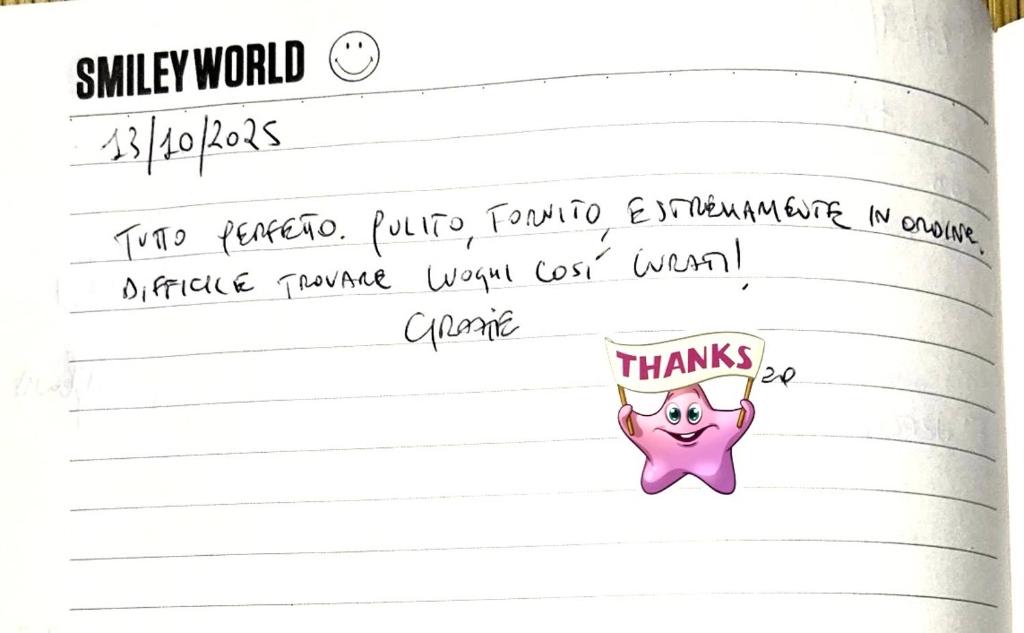 SMILEYWORLD
13/10/2025
TUTTO PERFETTO. PULITO, FORNITO, ESTREMAMENTE IN ORDINE.
DIFFICILE TROVARE LUOGHI COSÍ CURATI!
GRAZIE
THANKS